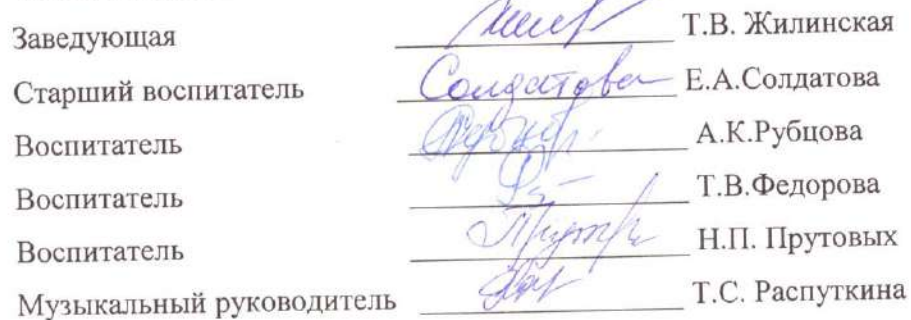 Заведующая Т.В. Жилинская
Старший воспитатель Солдатова Е.А.Солдатова
Воспитатель А.К.Рубцова
Воспитатель Т.В.Федорова
Воспитатель Н.П. Прутовых
Музыкальный руководитель Т.С. Распуткина